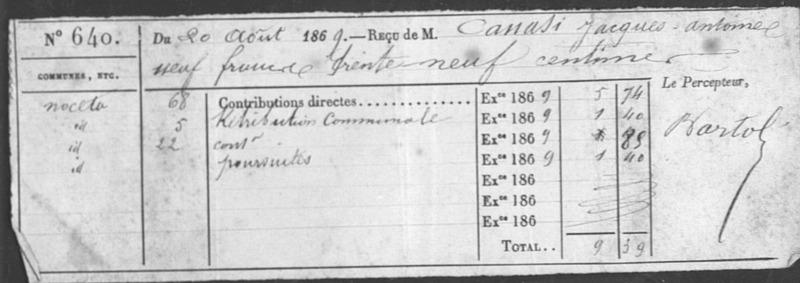 N° 640. Du 20 Août 1869.—Reçu de M. Canasi Jacques-antoine
neuf francs trente neuf centimes
COMMUNES, ETC. Le Percepteur,
noceta 68 Contributions directes Exce 1869 5 74
id 5 Rétribution Communale Exce 1869 1 40
id 22 contr Exce 1869 85
id poursuites Exce 1869 1 40
Exce 186
Exce 186
Exce 186
TOTAL.. 9 39
Bartoli